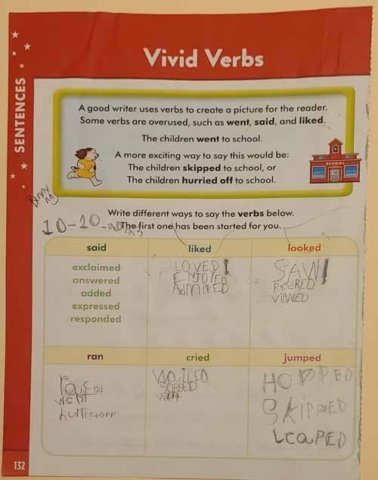 Vivid Verbs
SENTENCES
A good writer uses verbs to create a picture for the reader.
Some verbs are overused, such as went, said, and liked.
The children went to school.
A more exciting way to say this would be:
The children skipped to school, or
The children hurried off to school.
SCHOOL
Write different ways to say the verbs below.
10-10-
The first one has been started for you.
said liked looked
exclaimed
answered
added
expressed
responded
LOVED!
ADMIRED
SAW!
PEERED
ran cried jumped
WAILED
SOBBED
HOPPED
SKIPPED
LEAPED
132